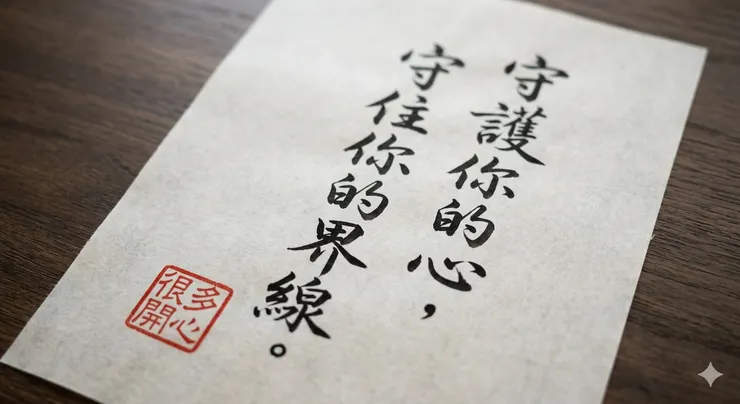 守護你的心，
守住你的界線。
多心
很開